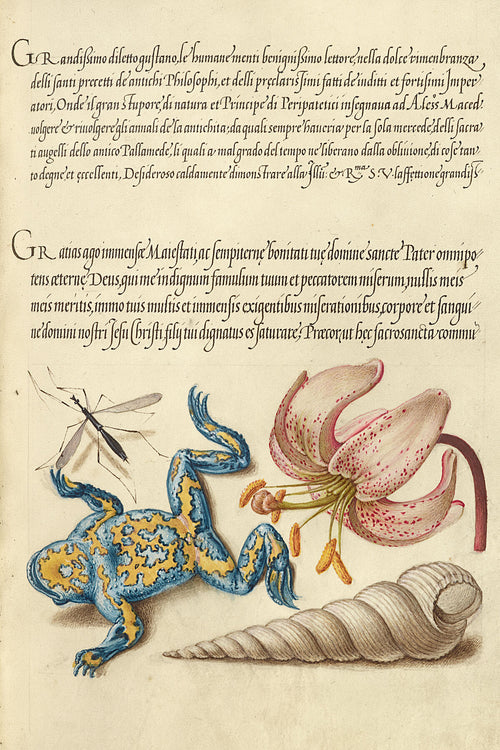 GRandißimo diletto gustano, le humane menti benignißimo lettore, nella dolce rimenbranza
delli santi precetti de antichi Philosophi, et delli preclarissimi fatti de inditti et fortissimi Imper
atori, Onde il gran stupore, di natura et Principe di Peripatetici insegnaua ad Aless Maced
uolgere & riuolgere gli annali de la antichita, da quali sempre haueria per la sola mercede, delli sacra
ti augelli dello amico Pallamede, li quali a mal grado del tempo ne liberano dalla obliuione, di cose tan
to degne, et eccellenti, Desideroso caldamente dimonstrare alla Illu: & Rma S. V. l'affettione grandiss
GRatias ago immensæ Maiestati, ac sempiternę bonitati tuę domine sancte Pater omnipo-
tens æternę Deus, qui me indignum famulum tuum et peccatorem miserum, nullis meis
meis meritis, immo tuis multis et immensis exigentibus miserationibus, corpore et sangui-
ne domini nostri Jesu Christi, filij tui dignatus es saturare, Præcor, ut hec sacrosancta commu-